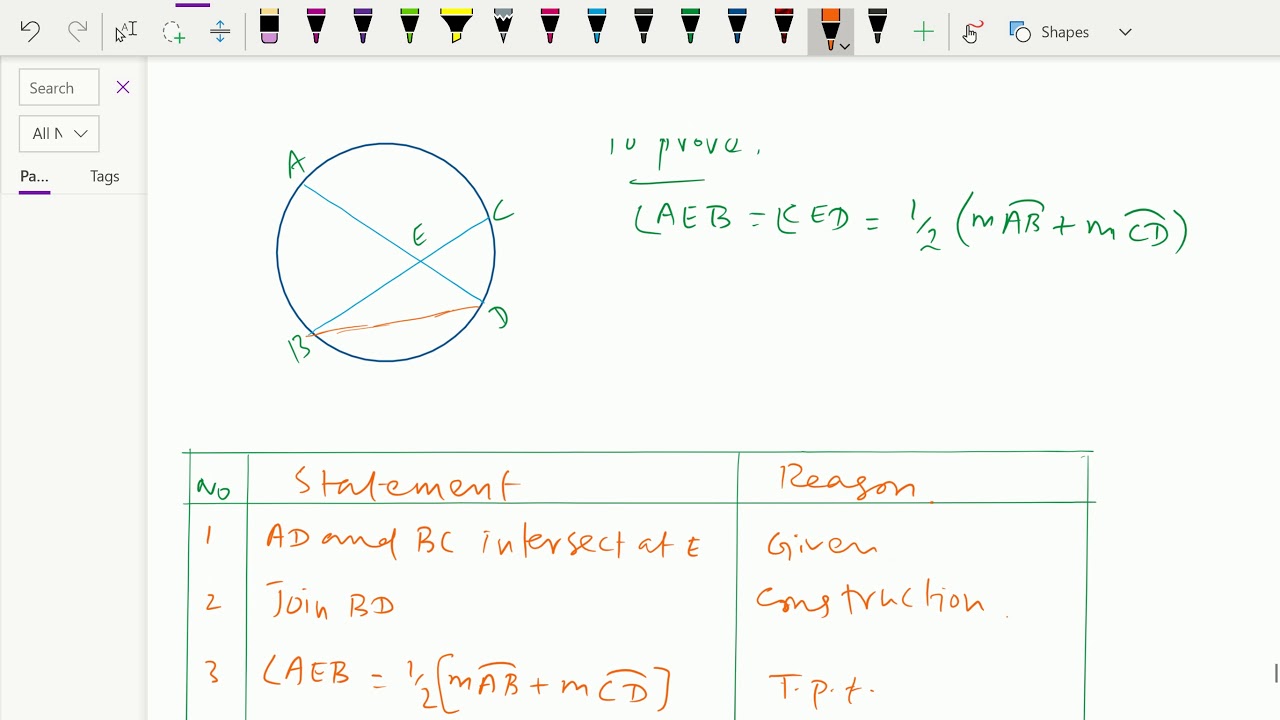 Shapes
Search
All N
Pa...
Tags
To prove.
∠AEB = ∠CED = 1/2 (mAB + mCD)
A
C
E
D
B
No Statement Reason
1 AD and BC intersect at E Given
2 Join BD Construction
3 ∠AEB = 1/2 [mAB + mCD] T.p.t.